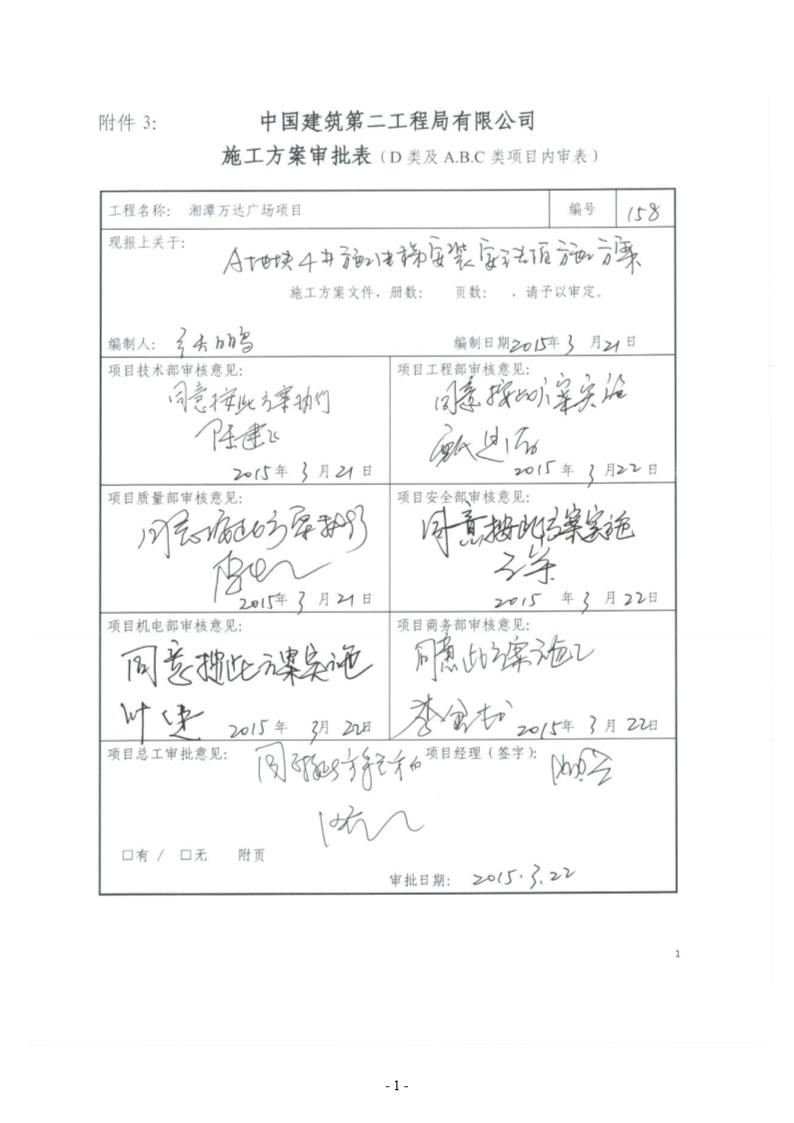 附件 3:
中国建筑第二工程局有限公司
施工方案审批表（D 类及 A.B.C 类项目内审表）
工程名称: 湘潭万达广场项目 编号 158
现报上关于:
A地块4#施工电梯安装安全专项施工方案
施工方案文件，册数: 页数: ，请予以审定。
编制人: 编制日期2015年3月21日
项目技术部审核意见: 项目工程部审核意见:
同意按此方案执行 同意按此方案实施
2015年3月21日 2015年3月22日
项目质量部审核意见: 项目安全部审核意见:
同意按此方案执行 同意按此方案实施
2015年3月21日 2015年3月22日
项目机电部审核意见: 项目商务部审核意见:
同意按此方案实施 同意此方案施工
叶建 2015年3月22日 2015年3月22日
项目总工审批意见: 项目经理（签字）:
□有 / □无 附页
审批日期: 2015.3.22
1
- 1 -